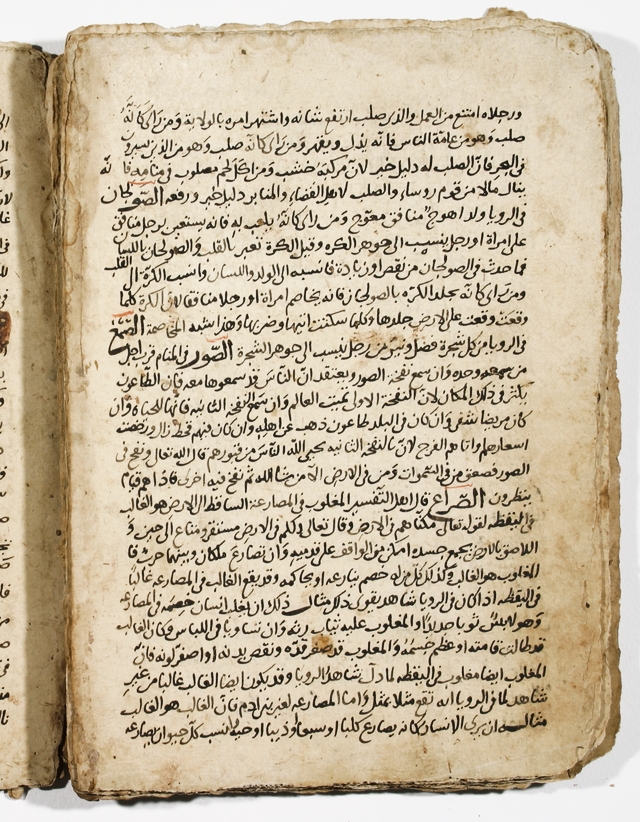 ورجلاه امتنع من العمل والذي صلب ارتفع شانه واشتهر امره بالولاية ومن راى كانه
صلب وهو من عامة الناس فانه يذل ويقهر ومن راى كانه صلب وهو من الذين يسيرون
في البحر فان الصلب له دليل خير لان مركبه خشب ومن اكل لحم مصلوب في منامه فانه
ينال مالا من قوم روساء والصلب لاهل القضاء والمنابر دليل خير ورفعه الصولجان
في الرويا ولد اهوج منافق معوج ومن راى كانه يلعب به فانه يستعين برجل منافق
على امراة او رجل ينسب الى جوهر الكره وقيل الكرة تعبر بالقلب والصولجان باللسان
فما حدث في الصولجان من نقص او زيادة فانسبه الى الولد واللسان وانسب الكرة الى القلب
ومن راى كانه يجلد الكره بالصولجان فانه يخاصم امراة او رجلا منافقا لان الكرة كلما
وقعت وقعت على الارض جلدها وكلما سكنت اتبها وضربها وهذا يشبه المخاصمة الصمغ
في الرويا من كل شجرة فضل وخير من رجل ينسب الى جوهر الشجرة الصور في المنام فمن اجل
من سمعه وحده وان سمع نفخة الصور ويعتقد ان الناس قد سمعوها معه فان الطاعون
يكثر في ذلك المكان لان النفخة الاولى تميت العالم وان سمع النفخ الثانيه فانها للحياة وان
كان مريضا شفي وان كان في البلد طاعون ذهب عن اهله وان كان فيهم قحط زال ورخصت
اسعارهم واتاهم الفرج لان بالنفخ الثانيه يحيى الله الناس من قبورهم قال الله تعالى ونفخ في
الصور فصعق من في السموات ومن في الارض الا من شا الله ثم نفخ فيه اخرى فاذا هم قيام
ينظرون الصراع قال اهل التفسير المغلوب في المصارعة الساقط الى الارض هو الغالب
في اليقظه لقوله تعالى مكناهم في الارض وقال تعالى ولكم في الارض مستقر ومتاع الى حين و
اللاصق بالارض بجميع جسده امكن من الواقف على قدميه وان تصارع ملكان وبينهما حرب فا
المغلوب هو الغالب وكذلك كل من له خصم ينازعه او يحاكمه وقد يقع الغالب في المصارعه غالبا
في اليقظه اذا كان في الرويا شاهد يقوي ذلك مثال ذلك ان يغلب انسان خصمه في المصارعه
وهو لابس ثوبا جديدا والمغلوب عليه ثياب رثه وان تساويا في اللباس وكان الغالب
قد طالت قامته او عظم جسمه والمغلوب قد صغر قده ونقص بدنه او اصفر لونه فان
المغلوب ايضا مغلوب في اليقظه لما دل شاهد الرويا وقد يكون ايضا الغالب غالبا من غير
شاهد لما في الرويا انه تقع مثلا بمثل واما المصارعه لغير بني ادم فان الغالب هو الغالب
مثاله ان يرى الانسان كانه يصارع كلبا او سبعا او ذيبا او حية وانسب كل حيوان يصارعه